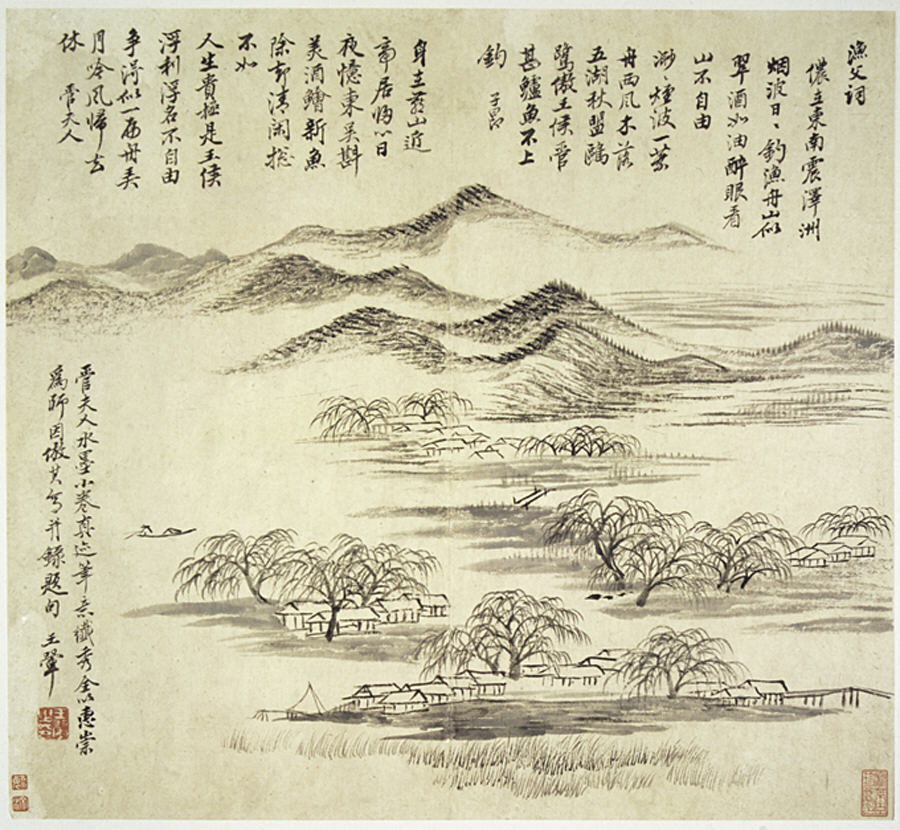 漁父詞
儂在東南震澤洲
烟波日〻釣漁舟山似
翠酒如油醉眼看
山不自由
渺〻煙波一葉
舟西風木落
五湖秋盟鷗
鷺傲王侯管
甚鱸魚不上
鈎 子昂
身在燕山近
帝居歸心日
夜憶東吳斟
美酒鱠新魚
除却清閑揔
不如
人生貴極是王侯
浮利浮名不自由
爭得似一扁舟弄
月吟風歸去
休 管夫人
管夫人水墨小卷真迹筆意纖秀全以惠崇
為師因倣其并錄題句 王翬